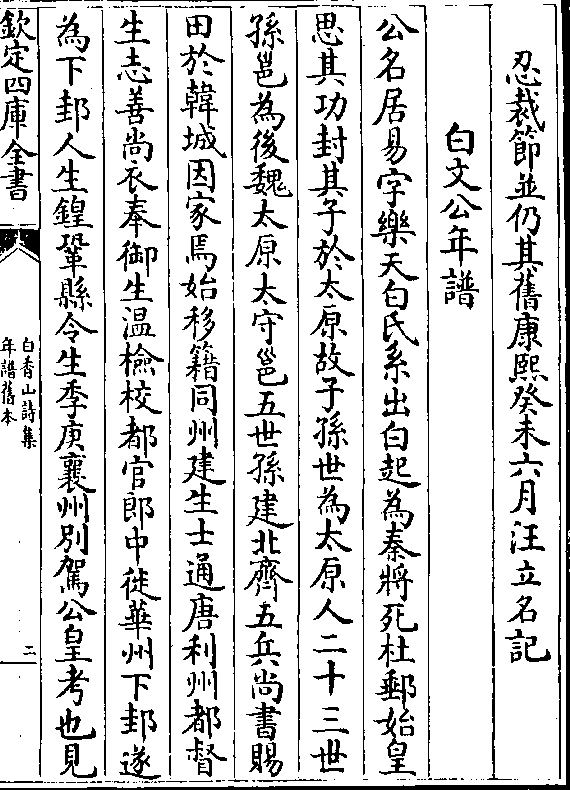 忍裁節並仍其舊康熙癸未六月汪立名記
白文公年譜
公名居易字樂天白氏系出白起為秦將死杜郵始皇
思其功封其子於太原故子孫世為太原人二十三世
孫邕為後魏太原太守邕五世孫建北齊五兵尚書賜
田於韓城因家焉始移籍同州建生士通唐利州都督
生志善尚衣奉御生温檢校都官郎中徙華州下邽遂
為下邽人生鍠鞏縣令生季庚襄州别駕公皇考也見
欽定四庫全書
白香山詩集
年譜舊本
二